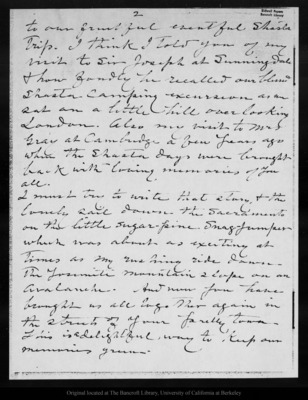 2
to our fruitful eventful Shasta
trip. I think I told you of my
visit to Sir Joseph at Sunningdale
& how fondly he recalled our
Shasta camping excursion as we
sat on a little hill overlooking
London. Also my visit to Mrs
Gray at Cambridge a few years ago
when the Shasta days were brought
back with loving memories of you
all.
I must try to write that story & the
lovely sail down the Sacramento
on the little sugar pine Snagjumper
which was about as exciting at
times as my rushing ride down
the Yosemite mountain slope on an
avalanche. And now you have
brought us all together again in
the streets of your town.
This is a delightful way to keep our
memories green.
Original located at The Bancroft Library, University of California at Berkeley